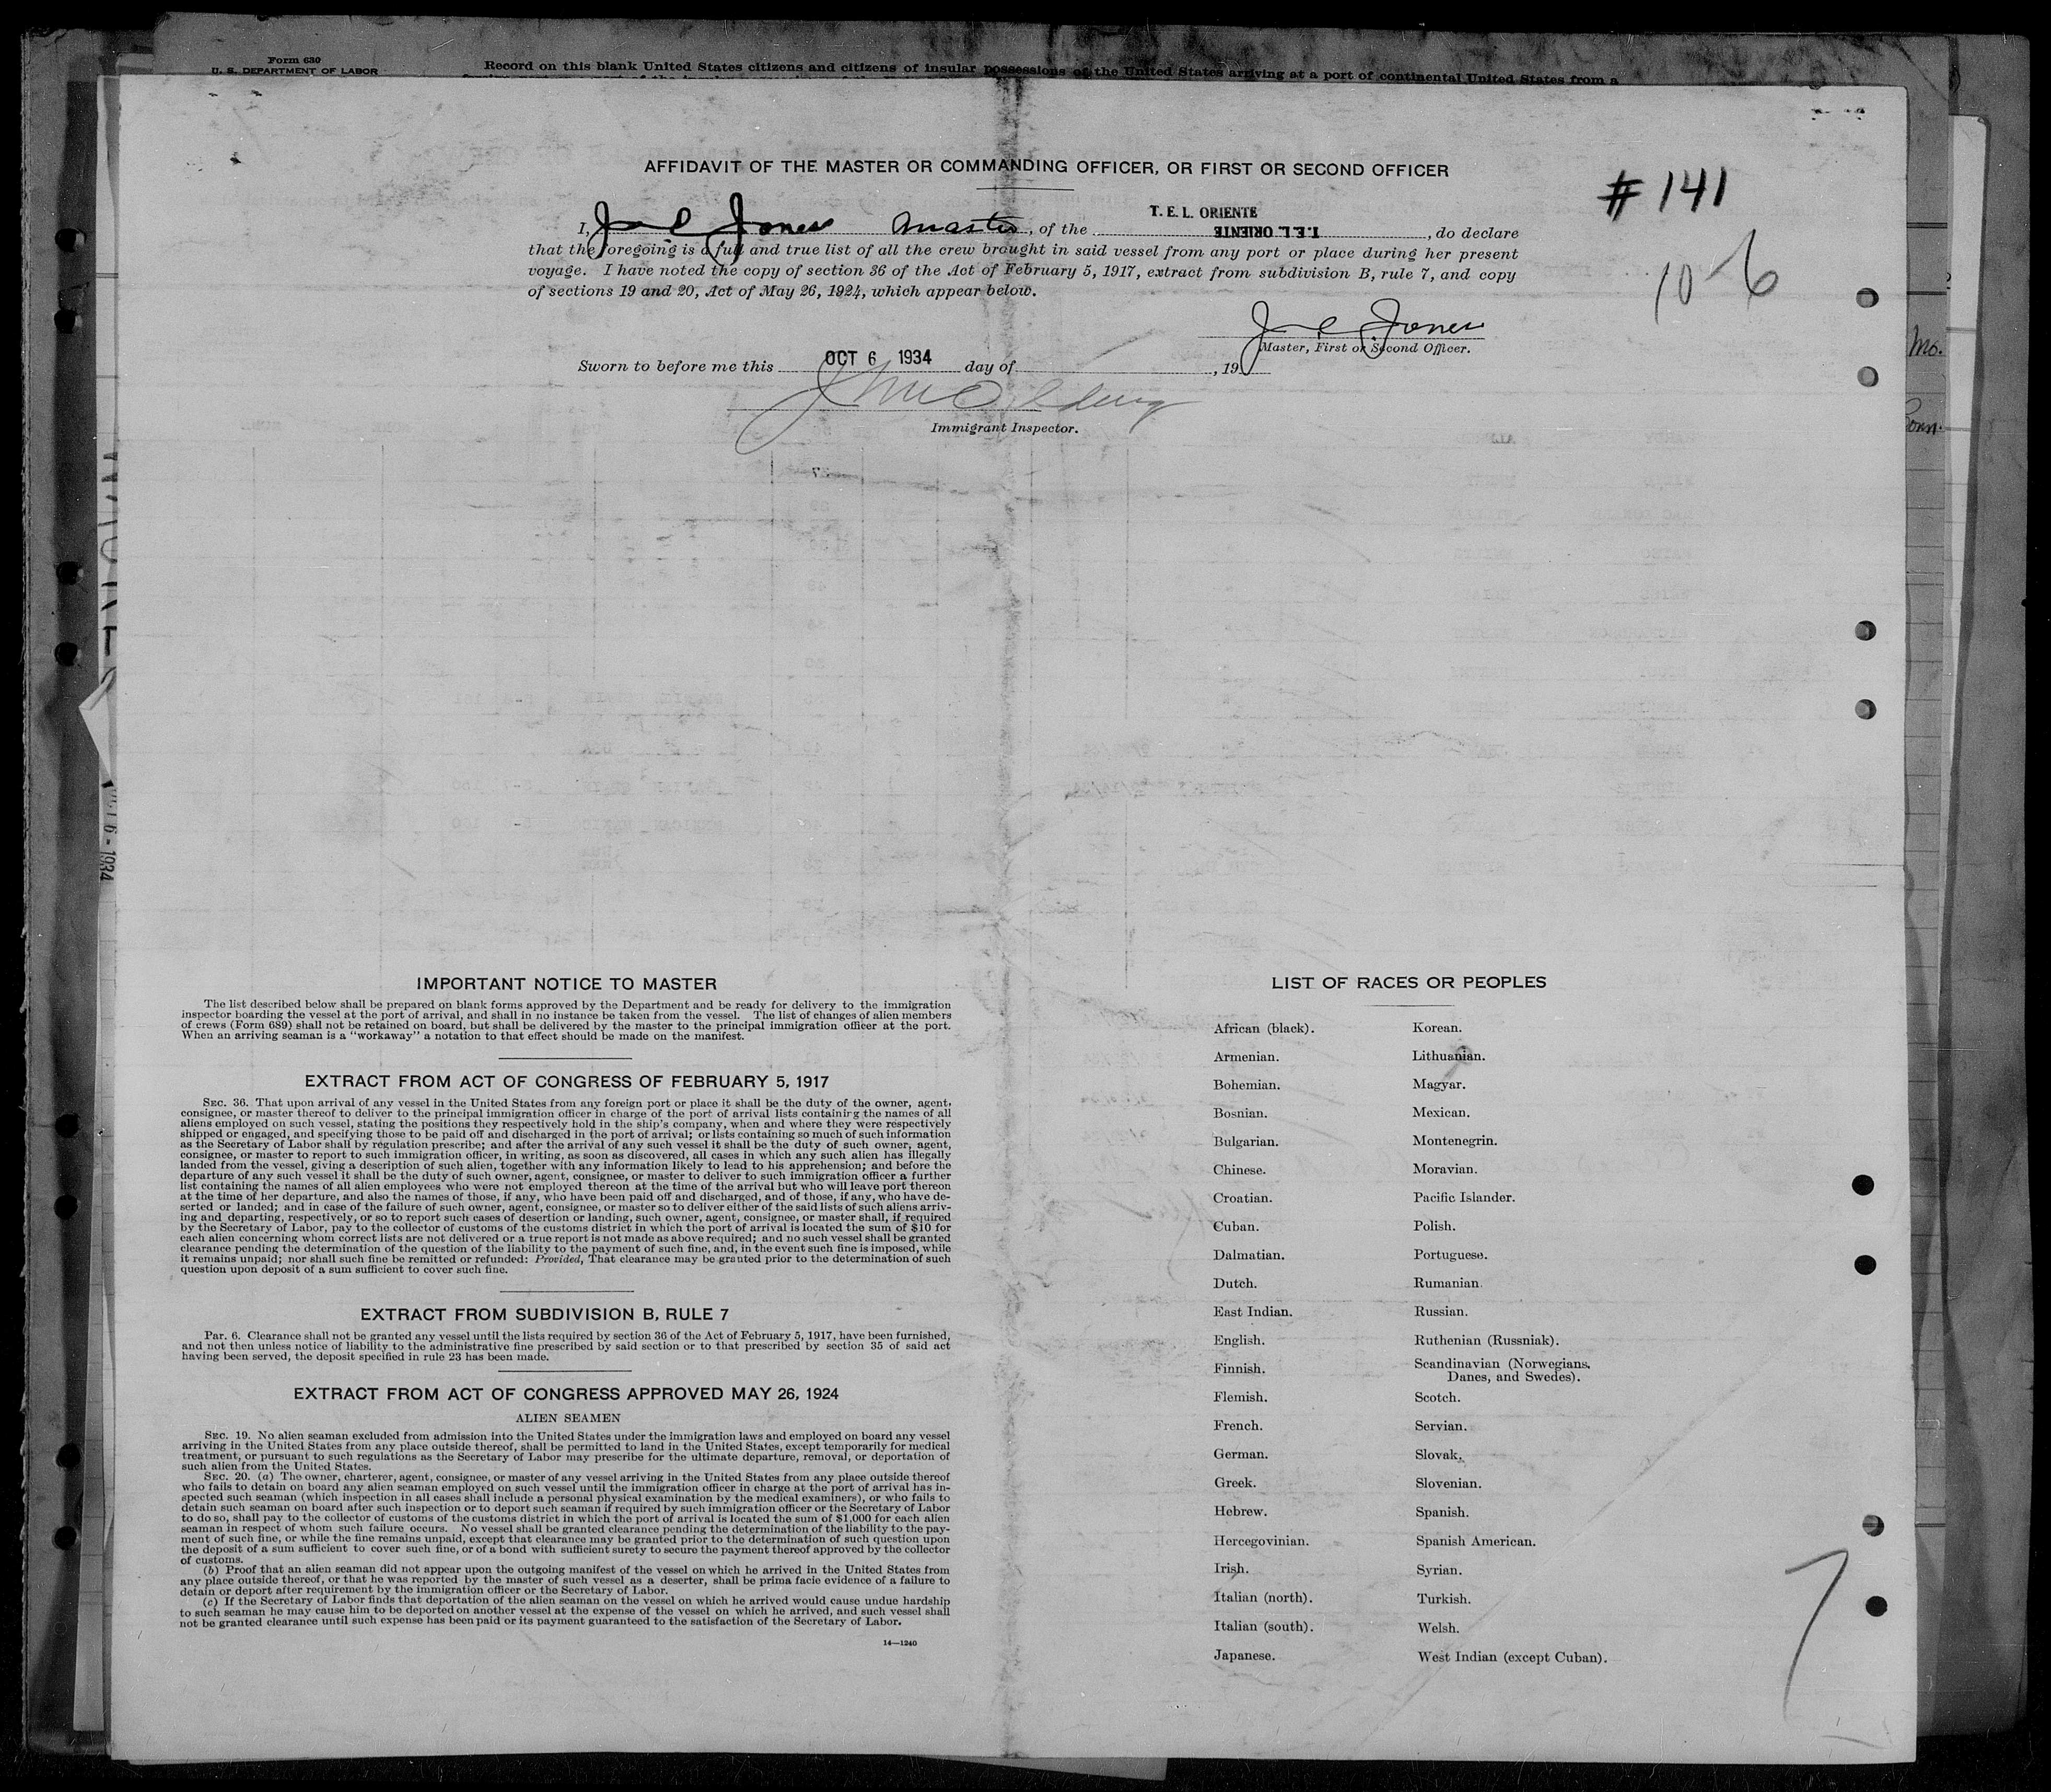 Form 630
U. S. DEPARTMENT OF LABOR
Record on this blank United States citizens and citizens of insular possessions of the United States arriving at a port of continental United States from a
AFFIDAVIT OF THE MASTER OR COMMANDING OFFICER, OR FIRST OR SECOND OFFICER
# 141
10-6
T. E. L. ORIENTE
I, J E Jones Master, of the T. E. L. ORIENTE, do declare
that the foregoing is a full and true list of all the crew brought in said vessel from any port or place during her present
voyage. I have noted the copy of section 36 of the Act of February 5, 1917, extract from subdivision B, rule 7, and copy
of sections 19 and 20, Act of May 26, 1924, which appear below.
J E Jones
Master, First or Second Officer.
Sworn to before me this OCT 6 1934 day of , 19
Immigrant Inspector.
Mo.
Conn.
IMPORTANT NOTICE TO MASTER
The list described below shall be prepared on blank forms approved by the Department and be ready for delivery to the immigration
inspector boarding the vessel at the port of arrival, and shall in no instance be taken from the vessel. The list of changes of alien members
of crews (Form 689) shall not be retained on board, but shall be delivered by the master to the principal immigration officer at the port.
When an arriving seaman is a "workaway" a notation to that effect should be made on the manifest.
EXTRACT FROM ACT OF CONGRESS OF FEBRUARY 5, 1917
SEC. 36. That upon arrival of any vessel in the United States from any foreign port or place it shall be the duty of the owner, agent,
consignee, or master thereof to deliver to the principal immigration officer in charge of the port of arrival lists containing the names of all
aliens employed on such vessel, stating the positions they respectively hold in the ship's company, when and where they were respectively
shipped or engaged, and specifying those to be paid off and discharged in the port of arrival; or lists containing so much of such information
as the Secretary of Labor shall by regulation prescribe; and after the arrival of any such vessel it shall be the duty of such owner, agent,
consignee, or master to report to such immigration officer, in writing, as soon as discovered, all cases in which any such alien has illegally
landed from the vessel, giving a description of such alien, together with any information likely to lead to his apprehension; and before the
departure of any such vessel it shall be the duty of such owner, agent, consignee, or master to deliver to such immigration officer a further
list containing the names of all alien employees who were not employed thereon at the time of the arrival but who will leave port thereon
at the time of her departure, and also the names of those, if any, who have been paid off and discharged, and of those, if any, who have de-
serted or landed; and in case of the failure of such owner, agent, consignee, or master so to deliver either of the said lists of such aliens arriv-
ing and departing, respectively, or so to report such cases of desertion or landing, such owner, agent, consignee, or master shall, if required
by the Secretary of Labor, pay to the collector of customs of the customs district in which the port of arrival is located the sum of $10 for
each alien concerning whom correct lists are not delivered or a true report is not made as above required; and no such vessel shall be granted
clearance pending the determination of the question of the liability to the payment of such fine, and, in the event such fine is imposed, while
it remains unpaid; nor shall such fine be remitted or refunded: Provided, That clearance may be granted prior to the determination of such
question upon deposit of a sum sufficient to cover such fine.
EXTRACT FROM SUBDIVISION B, RULE 7
PAR. 6. Clearance shall not be granted any vessel until the lists required by section 36 of the Act of February 5, 1917, have been furnished,
and not then unless notice of liability to the administrative fine prescribed by said section or to that prescribed by section 35 of said act
having been served, the deposit specified in rule 23 has been made.
EXTRACT FROM ACT OF CONGRESS APPROVED MAY 26, 1924
ALIEN SEAMEN
SEC. 19. No alien seaman excluded from admission into the United States under the immigration laws and employed on board any vessel
arriving in the United States from any place outside thereof, shall be permitted to land in the United States, except temporarily for medical
treatment, or pursuant to such regulations as the Secretary of Labor may prescribe for the ultimate departure, removal, or deportation of
such alien from the United States.
SEC. 20. (a) The owner, charterer, agent, consignee, or master of any vessel arriving in the United States from any place outside thereof
who fails to detain on board any alien seaman employed on such vessel until the immigration officer in charge at the port of arrival has in-
spected such seaman (which inspection in all cases shall include a personal physical examination by the medical examiners), or who fails to
detain such seaman on board after such inspection or to deport such seaman if required by such immigration officer or the Secretary of Labor
to do so, shall pay to the collector of customs of the customs district in which the port of arrival is located the sum of $1,000 for each alien
seaman in respect of whom such failure occurs. No vessel shall be granted clearance pending the determination of the liability to the pay-
ment of such fine, or while the fine remains unpaid, except that clearance may be granted prior to the determination of such question upon
the deposit of a sum sufficient to cover such fine, or of a bond with sufficient surety to secure the payment thereof approved by the collector
of customs.
(b) Proof that an alien seaman did not appear upon the outgoing manifest of the vessel on which he arrived in the United States from
any place outside thereof, or that he was reported by the master of such vessel as a deserter, shall be prima facie evidence of a failure to
detain or deport after requirement by the immigration officer or the Secretary of Labor.
(c) If the Secretary of Labor finds that deportation of the alien seaman on the vessel on which he arrived would cause undue hardship
to such seaman he may cause him to be deported on another vessel at the expense of the vessel on which he arrived, and such vessel shall
not be granted clearance until such expense has been paid or its payment guaranteed to the satisfaction of the Secretary of Labor.
14—1240
LIST OF RACES OR PEOPLES
African (black).
Armenian.
Bohemian.
Bosnian.
Bulgarian.
Chinese.
Croatian.
Cuban.
Dalmatian.
Dutch.
East Indian.
English.
Finnish.
Flemish.
French.
German.
Greek.
Hebrew.
Hercegovinian.
Irish.
Italian (north).
Italian (south).
Japanese.
Korean.
Lithuanian.
Magyar.
Mexican.
Montenegrin.
Moravian.
Pacific Islander.
Polish.
Portuguese.
Rumanian.
Russian.
Ruthenian (Russniak).
Scandinavian (Norwegians,
Danes, and Swedes).
Scotch.
Servian.
Slovak.
Slovenian.
Spanish.
Spanish American.
Syrian.
Turkish.
Welsh.
West Indian (except Cuban).
7